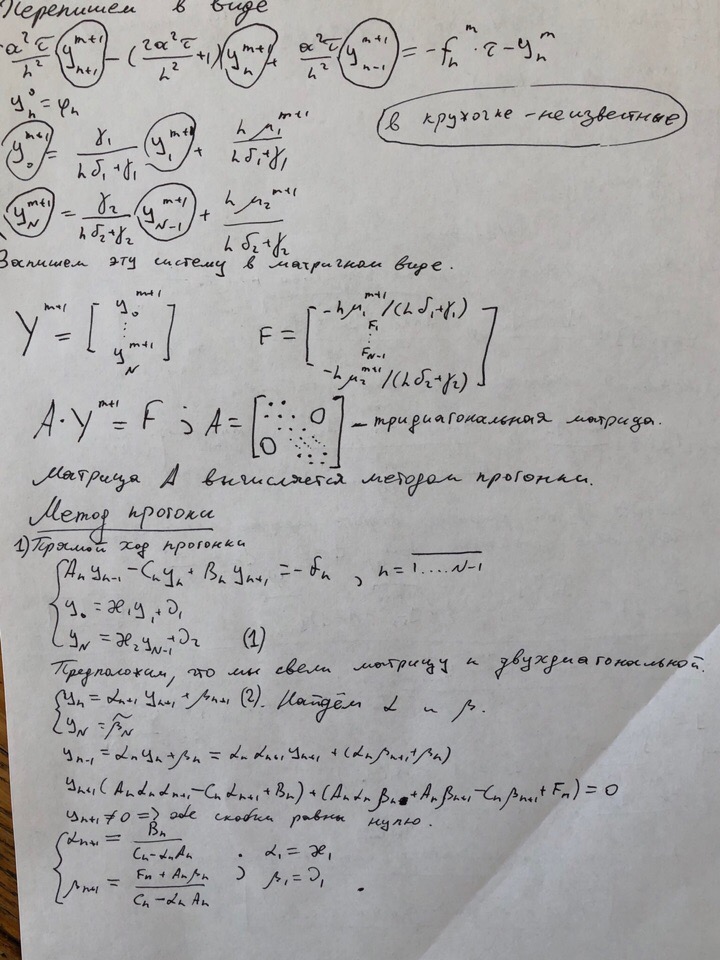 Перепишем в виде
a²τ/h² y_{n+1}^{m+1} - (2a²τ/h² + 1) y_n^{m+1} + a²τ/h² y_{n-1}^{m+1} = -f_n^m · τ - y_n^m
y_n^0 = φ_n
в кружочке - неизвестные
y_0^{m+1} = γ_1/(hδ_1+γ_1) y_1^{m+1} + hμ_1^{m+1}/(hδ_1+γ_1)
y_N^{m+1} = γ_2/(hδ_2+γ_2) y_{N-1}^{m+1} + hμ_2^{m+1}/(hδ_2+γ_2)
Запишем эту систему в матричном виде.
Y^{m+1} = [y_0^{m+1} ⋮ y_N^{m+1}] F = [-hμ_1^{m+1}/(hδ_1+γ_1) F_1 ⋮ F_{N-1} -hμ_2^{m+1}/(hδ_2+γ_2)]
A·Y^{m+1} = F ; A = [⋱ 0 0 ⋱] - тридиагональная матрица.
Матрица A вычисляется методом прогонки.
Метод прогоки
1) Прямой ход прогонки
{ A_n y_{n-1} - C_n y_n + B_n y_{n+1} = -f_n , n = 1....N-1
y_0 = ϰ_1 y_1 + ν_1
y_N = ϰ_2 y_{N-1} + ν_2 (1)
Предположим, что мы свели матрицу к двухдиагональной.
{ y_n = α_{n+1} y_{n+1} + β_{n+1} (2). Найдём α и β.
y_N = β̃_N
y_{n-1} = α_n y_n + β_n = α_n α_{n+1} y_{n+1} + (α_n β_{n+1} + β_n)
y_{n+1} (A_n α_n α_{n+1} - C_n α_{n+1} + B_n) + (A_n α_n β_n + A_n β_{n+1} - C_n β_{n+1} + F_n) = 0
y_{n+1} ≠ 0 => обе скобки равны нулю.
{ α_{n+1} = B_n/(C_n - α_n A_n) ; α_1 = ϰ_1
β_{n+1} = (F_n + A_n β_n)/(C_n - α_n A_n) ; β_1 = ν_1 .